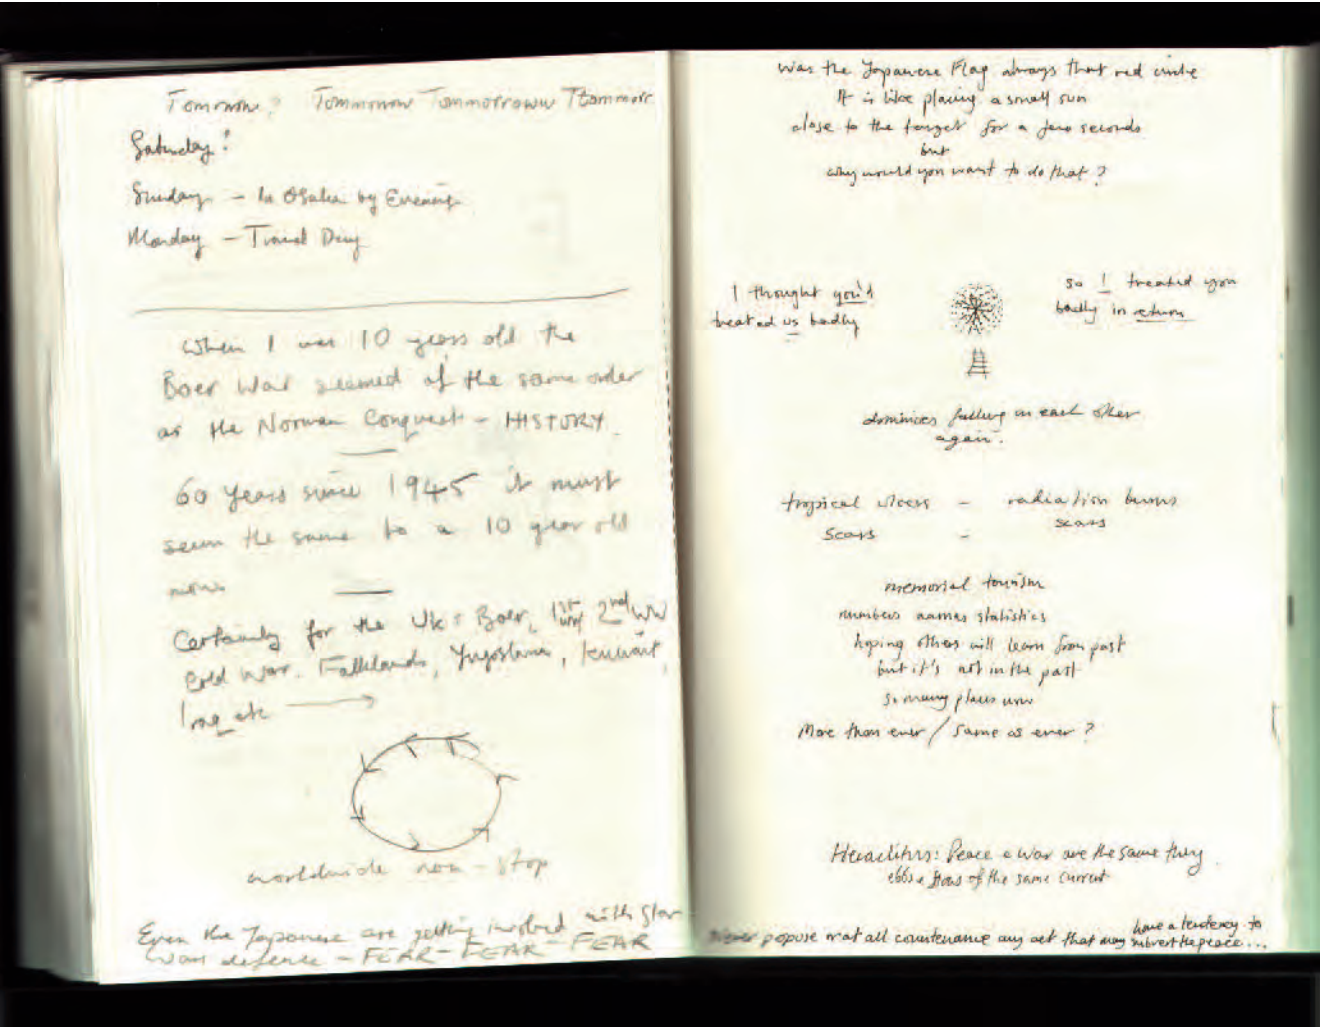 Tomorrow? Tommorrow Tommorroww Ttommorr
Saturday?
Sunday - In Osaka by Evening
Monday - Travel Day
When I was 10 years old the
Boer War seemed of the same order
as the Norman Conquest - HISTORY.
60 years since 1945 it must
seem the same to a 10 year old
now
Certainly for the UK: Boer, 1st WW 2nd WW
Cold War. Falklands, Yugoslavia, Kuwait,
Iraq etc
worldwide non-stop
Even the Japanese are getting involved with Star
Wars defence - FEAR - FEAR - FEAR
Was the Japanese Flag always that red circle
It is like placing a small sun
close to the target for a few seconds
but
why would you want to do that?
I thought you'd
treated us badly
so I treated you
badly in return
dominoes falling on each other
again.
tropical ulcers - radiation burns
scars - scars
memorial tourism
numbers names statistics
hoping others will learn from past
but it's not in the past
so many places now
More than ever / same as ever?
Heraclitus: Peace & War are the same they
ebbs & flows of the same current
never popuse or at all countenance any act that may have a tendency to
subvert the peace...